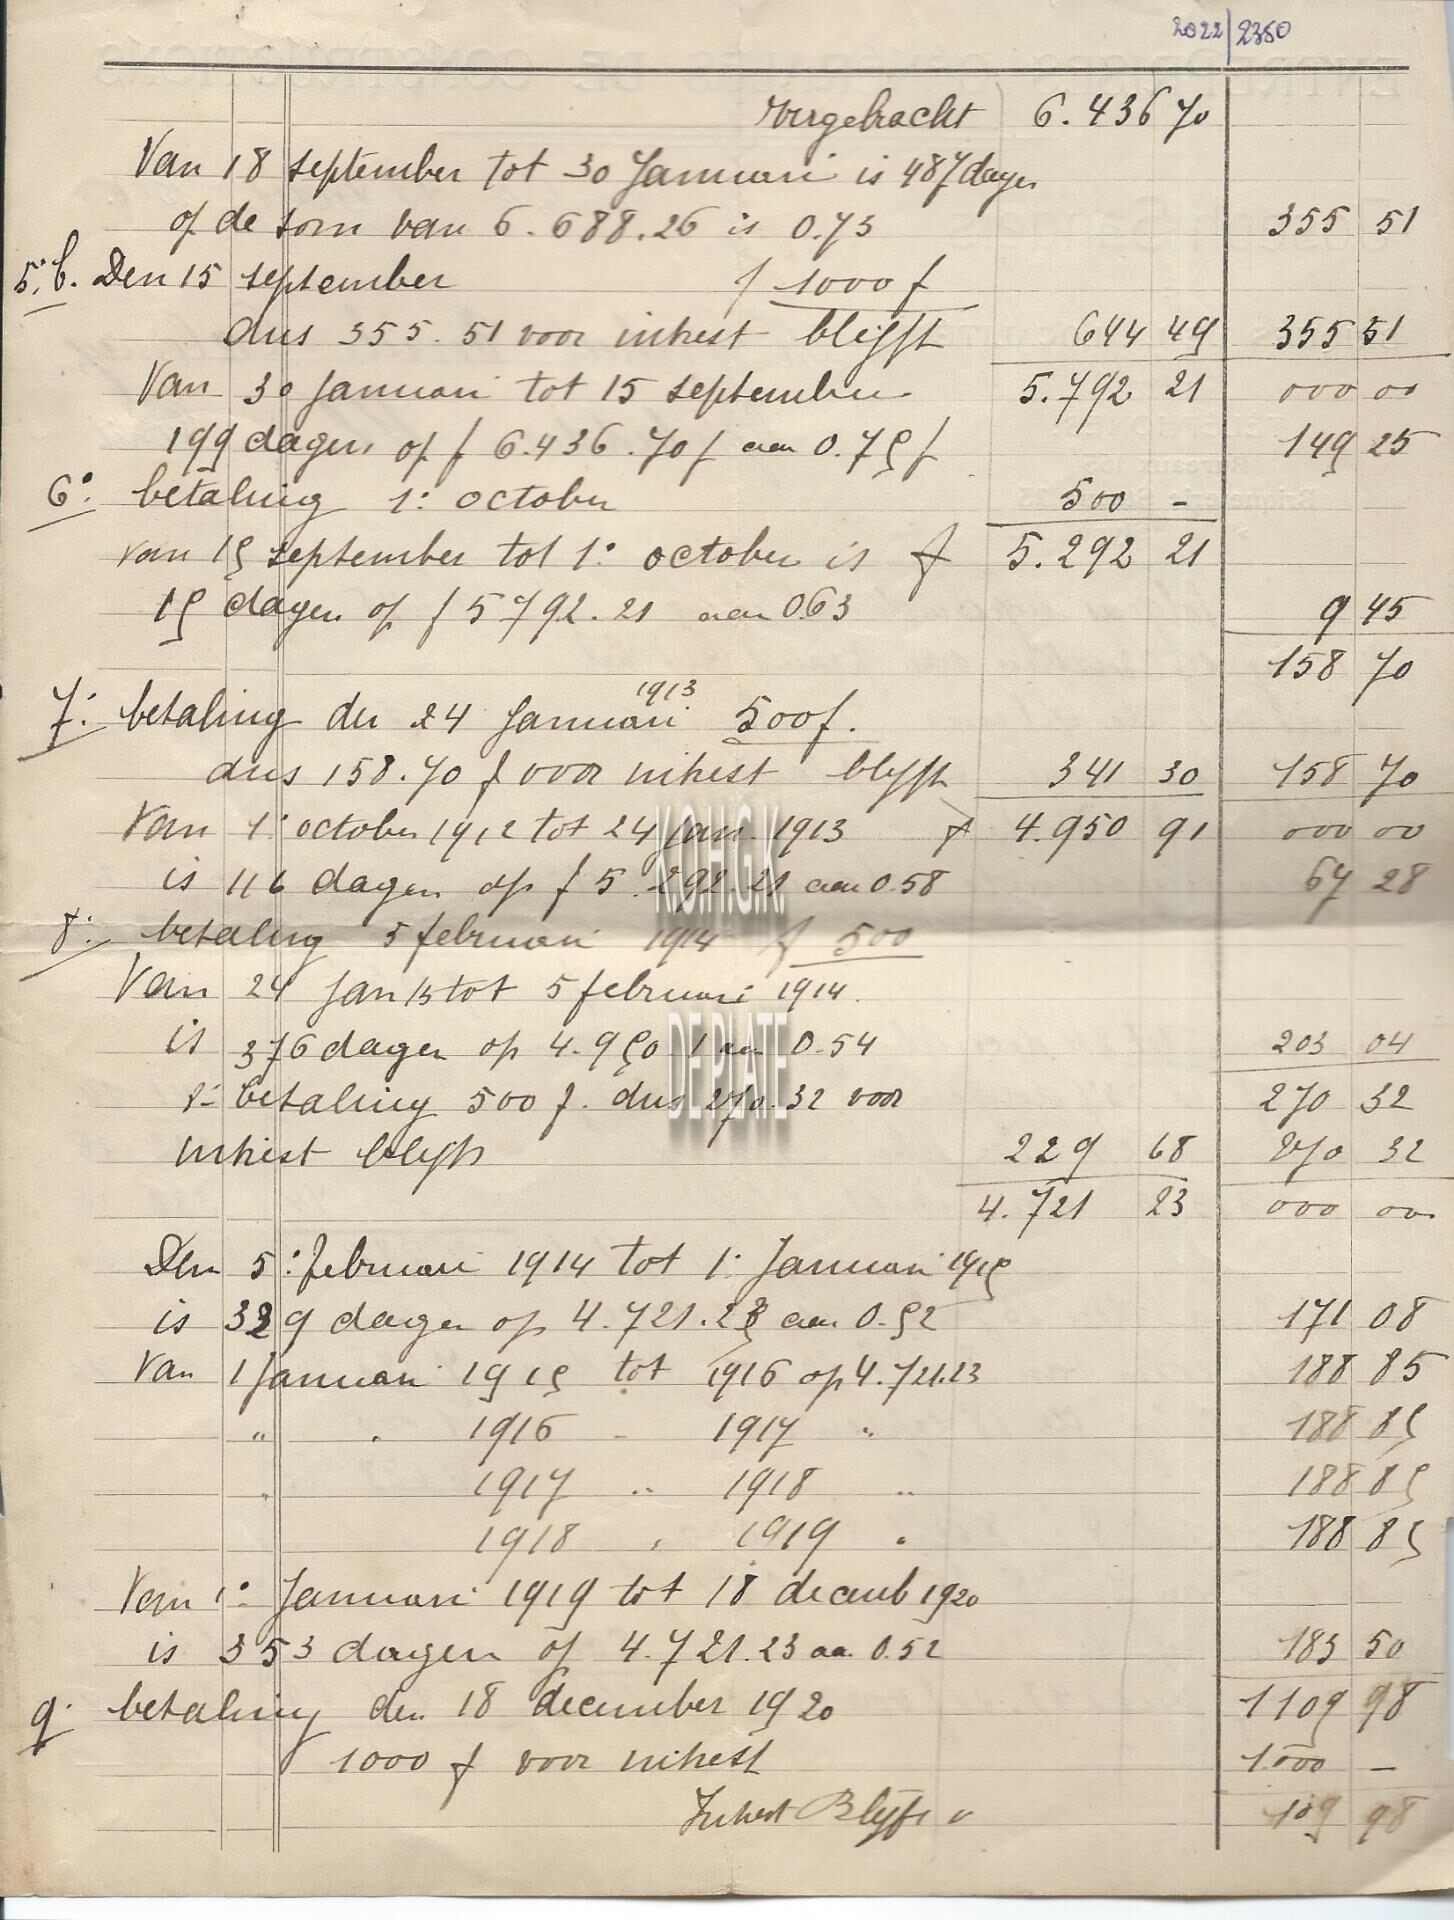 2022/2350
overgebracht 6.436 70
Van 18 september tot 30 Januari is 487 dagen
op de som van 6.688.26 is 0.73 355 51
5° b. Den 15 september f 1000 f
dus 355.51 voor intrest blijft 644 49 355 51
Van 30 Januari tot 15 september 5.792 21 000 00
199 dagen op f 6.436.70 f aan 0.75 f 149 25
6° betaling 1° october 500 -
van 15 september tot 1° october is f 5.292 21
15 dagen op f 5792.21 aan 0.63 9 45
158 70
7° betaling den 24 Januari 1913 500 f.
dus 158.70 f voor intrest blijft 341 30 158 70
Van 1° october 1912 tot 24 Jan. 1913 f 4.950 91 000 00
is 116 dagen op f 5.292.21 aan 0.58 67 28
8° betaling 5 februari 1914 f 500
Van 24 Jan 13 tot 5 februari 1914.
is 376 dagen op 4.950 1 aan 0.54 203 04
8° betaling 500 f. dus 270.32 voor 270 32
intrest blijft 229 68 270 32
4.721 23 000 00
Den 5° februari 1914 tot 1° Januari 1915
is 329 dagen op 4.721.23 aan 0.52 171 08
Van 1 Januari 1915 tot 1916 op 4.721.23 188 85
" " 1916 - 1917 " 188 85
" 1917 " 1918 " 188 85
1918 " 1919 " 188 85
Van 1° Januari 1919 tot 18 decemb 1920
is 353 dagen op 4.721.23 aa. 0.52 183 50
9° betaling den 18 december 1920 1109 98
1000 f voor intrest 1.000 -
Intrest Blijft 109 98
K.O.H.G.K.
DE PLATE